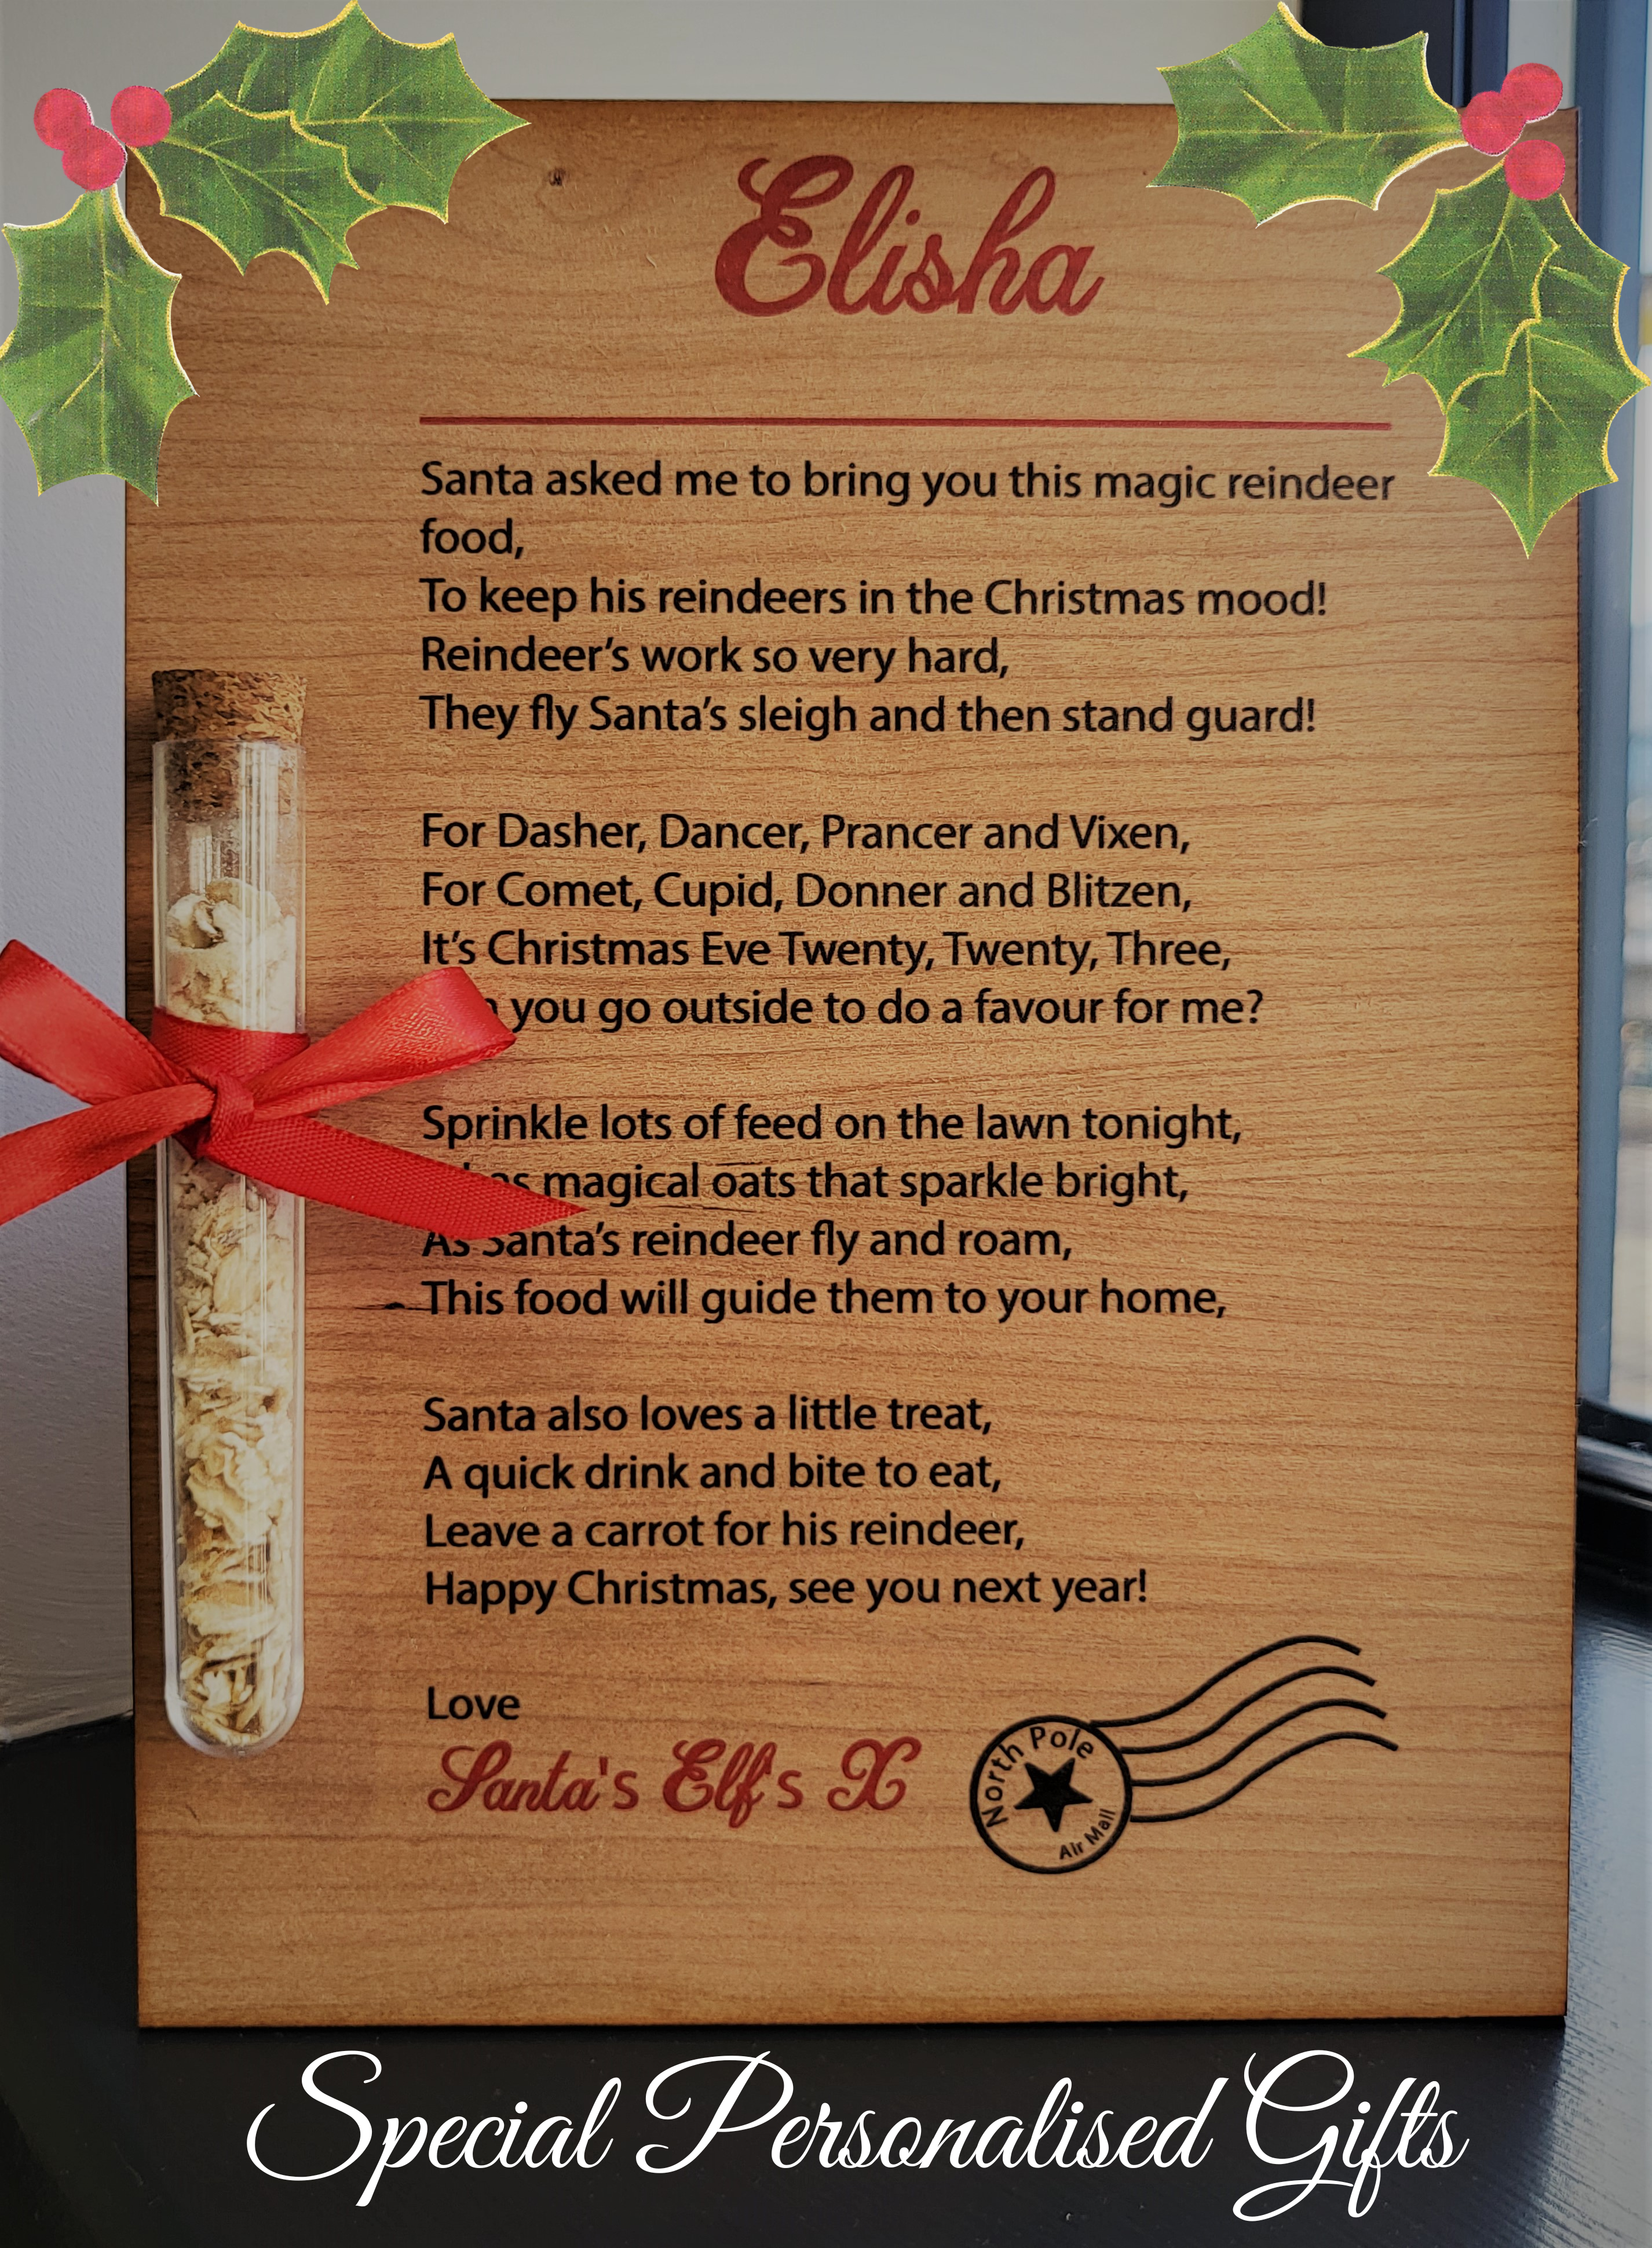 Elisha
Santa asked me to bring you this magic reindeer
food,
To keep his reindeers in the Christmas mood!
Reindeer's work so very hard,
They fly Santa's sleigh and then stand guard!
For Dasher, Dancer, Prancer and Vixen,
For Comet, Cupid, Donner and Blitzen,
It's Christmas Eve Twenty, Twenty, Three,
you go outside to do a favour for me?
Sprinkle lots of feed on the lawn tonight,
magical oats that sparkle bright,
As Santa's reindeer fly and roam,
This food will guide them to your home,
Santa also loves a little treat,
A quick drink and bite to eat,
Leave a carrot for his reindeer,
Happy Christmas, see you next year!
Love
Santa's Elf's X
North Pole
Air Mail
Special Personalised Gifts